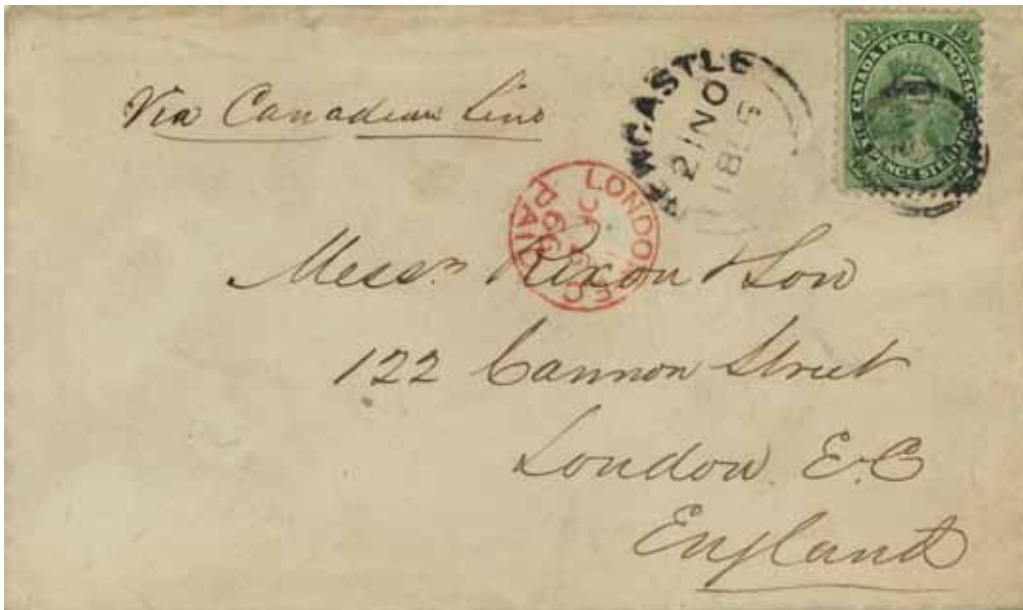 Via Canadian Line
NEWCASTLE
21 NO
12½ CANADA PACKET POSTAGE 12½
SIX PENCE STERLING
LONDON EC
PAID
Messrs Rixon & Son
122 Cannon Street
London. E.C
England